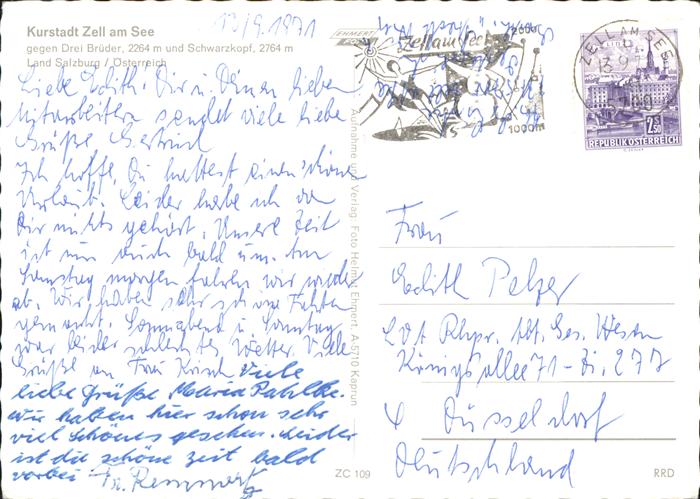 13/9.1971
Kurstadt Zell am See
gegen Drei Brüder, 2264 m und Schwarzkopf, 2764 m
Land Salzburg / Österreich
Liebe Edith. Dir u. Deinen lieben
Mitarbeitern sendet viele liebe
Grüße Gertrud
Ich hoffe, Du hattest einen schönen
Urlaub. Leider habe ich von
Dir nichts gehört. Unsere Zeit
ist nun auch bald um. Am
Samstag morgen fahren wir wieder
ab. Wir haben sehr schöne Fahrten
gemacht. Sonnabend u. Sonntag
war leider schlechtes Wetter. Viele
Grüße an Frau
Viele
liebe Grüße Maria Pahlke.
Wir haben hier schon sehr
viel schönes gesehen. Leider
ist die schöne Zeit bald
vorbei Fr.
Aufnahme und Verlag: Foto Helmut Ehmert, A-5710 Kaprun
ZC 109
RRD
EHMERT
Zell am See
2000m
1000m
ZELL AM SEE
13.9.71
2.50
REPUBLIK ÖSTERREICH
Frau
Edith Pelzer
LVA Rhpr. Abt. Ges. Wesen
Königsallee 71 - Zi. 277
4 Düsseldorf
Deutschland